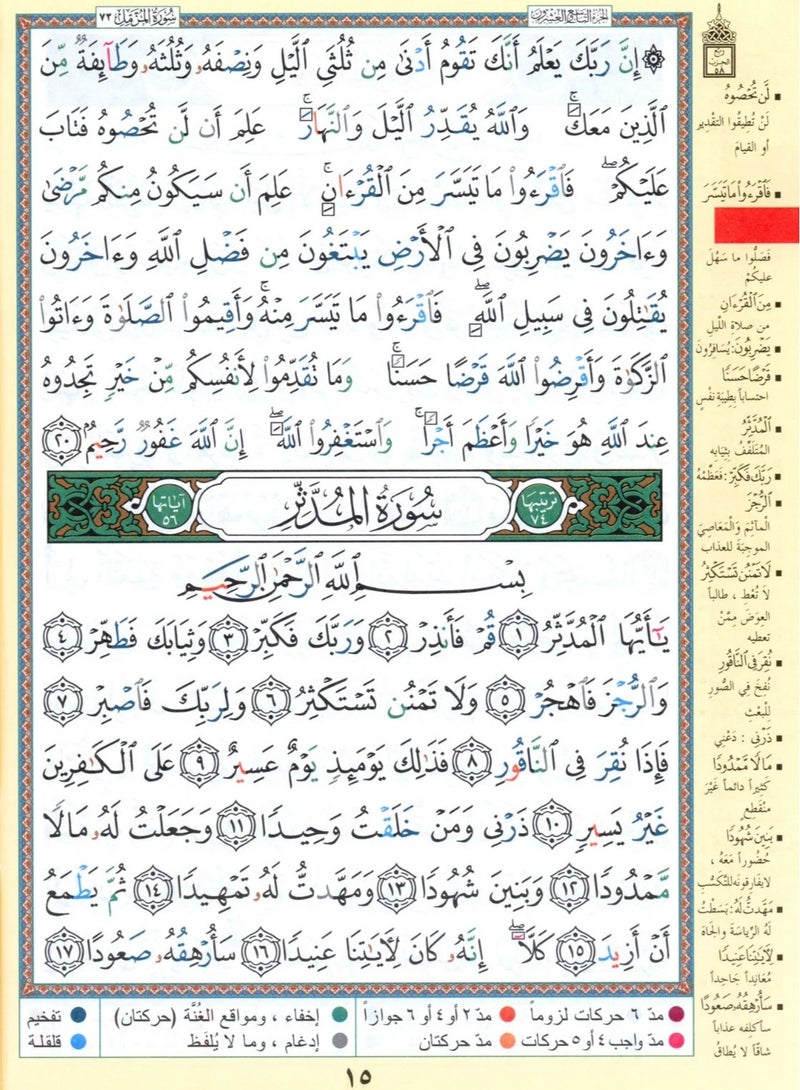 الجزء التاسع والعشرون
سورة المزمل ٧٣
ربع
الحزب
٥٨
۞ إِنَّ رَبَّكَ يَعْلَمُ أَنَّكَ تَقُومُ أَدْنَىٰ مِن ثُلُثَيِ ٱلَّيْلِ وَنِصْفَهُۥ وَثُلُثَهُۥ وَطَآئِفَةٌ مِّنَ
ٱلَّذِينَ مَعَكَ ۚ وَٱللَّهُ يُقَدِّرُ ٱلَّيْلَ وَٱلنَّهَارَ ۚ عَلِمَ أَن لَّن تُحْصُوهُ فَتَابَ
عَلَيْكُمْ ۖ فَٱقْرَءُوا۟ مَا تَيَسَّرَ مِنَ ٱلْقُرْءَانِ ۚ عَلِمَ أَن سَيَكُونُ مِنكُم مَّرْضَىٰ
وَءَاخَرُونَ يَضْرِبُونَ فِى ٱلْأَرْضِ يَبْتَغُونَ مِن فَضْلِ ٱللَّهِ وَءَاخَرُونَ
يُقَٰتِلُونَ فِى سَبِيلِ ٱللَّهِ ۖ فَٱقْرَءُوا۟ مَا تَيَسَّرَ مِنْهُ ۚ وَأَقِيمُوا۟ ٱلصَّلَوٰةَ وَءَاتُوا۟
ٱلزَّكَوٰةَ وَأَقْرِضُوا۟ ٱللَّهَ قَرْضًا حَسَنًا ۚ وَمَا تُقَدِّمُوا۟ لِأَنفُسِكُم مِّنْ خَيْرٍ تَجِدُوهُ
عِندَ ٱللَّهِ هُوَ خَيْرًا وَأَعْظَمَ أَجْرًا ۚ وَٱسْتَغْفِرُوا۟ ٱللَّهَ ۖ إِنَّ ٱللَّهَ غَفُورٌ رَّحِيمٌۢ ٢٠
ترتيبها ٧٤ سُورَةُ الْمُدَّثِّرِ آياتها ٥٦
بِسْمِ ٱللَّهِ ٱلرَّحْمَٰنِ ٱلرَّحِيمِ
يَٰٓأَيُّهَا ٱلْمُدَّثِّرُ ١ قُمْ فَأَنذِرْ ٢ وَرَبَّكَ فَكَبِّرْ ٣ وَثِيَابَكَ فَطَهِّرْ ٤
وَٱلرُّجْزَ فَٱهْجُرْ ٥ وَلَا تَمْنُن تَسْتَكْثِرُ ٦ وَلِرَبِّكَ فَٱصْبِرْ ٧
فَإِذَا نُقِرَ فِى ٱلنَّاقُورِ ٨ فَذَٰلِكَ يَوْمَئِذٍ يَوْمٌ عَسِيرٌ ٩ عَلَى ٱلْكَٰفِرِينَ
غَيْرُ يَسِيرٍ ١٠ ذَرْنِى وَمَنْ خَلَقْتُ وَحِيدًا ١١ وَجَعَلْتُ لَهُۥ مَالًا
مَّمْدُودًا ١٢ وَبَنِينَ شُهُودًا ١٣ وَمَهَّدتُّ لَهُۥ تَمْهِيدًا ١٤ ثُمَّ يَطْمَعُ
أَنْ أَزِيدَ ١٥ كَلَّآ ۖ إِنَّهُۥ كَانَ لِءَايَٰتِنَا عَنِيدًا ١٦ سَأُرْهِقُهُۥ صَعُودًا ١٧
▪ لَّن تُحْصُوهُ
لَنْ تُطِيقُوا التقدِير
أو القيامَ
▪ فَٱقْرَءُوا۟ مَا تَيَسَّرَ
فَصَلُّوا ما سَهُلَ
عليكمْ
▪ مِنَ ٱلْقُرْءَانِ
من صلاة اللّيل
▪ يَضْرِبُونَ: يُسَافِرُونَ
▪ قَرْضًا حَسَنًا
احتساباً بطِيبَة نفْسٍ
▪ ٱلْمُدَّثِّرُ
المُتَلَفِّفُ بثِيَابِه
▪ رَبَّكَ فَكَبِّرْ: فَعَظِّمْهُ
▪ ٱلرُّجْزَ
المآثِمَ والْمَعَاصِيَ
الموجِبَةَ للعذاب
▪ لَا تَمْنُن تَسْتَكْثِرُ
لا تُعْطِ، طالباً
العِوَضَ مِمَّنْ
تعطيه
▪ نُقِرَ فِى ٱلنَّاقُورِ
نُفِخَ فِي الصُّورِ
للْبَعْثِ
▪ ذَرْنِى: دَعْنِي
▪ مَالًا مَّمْدُودًا
كَثِيراً دائماً غَيْرَ
مُنْقَطِعٍ
▪ بَنِينَ شُهُودًا
حُضُوراً مَعَهُ،
لا يفارقونَه للتكَسُّبِ
▪ مَهَّدتُّ لَهُ: بَسَطْتُ
لَهُ الرِّيَاسَةَ والجَاهَ
▪ لِءَايَٰتِنَا عَنِيدًا
مُعَانِداً جَاحِداً
▪ سَأُرْهِقُهُۥ صَعُودًا
سأكلفه عذاباً
شاقّاً لا يُطاقُ
مدّ ٦ حركات لزوماً مدّ ٢ أو ٤ أو ٦ جوازاً إخفاء، ومواقع الغُنَّة (حركتان) تفخيم
مدّ واجب ٤ أو ٥ حركات مدّ حركتان إدغام، وما لا يُلفَظ قلقلة
١٥